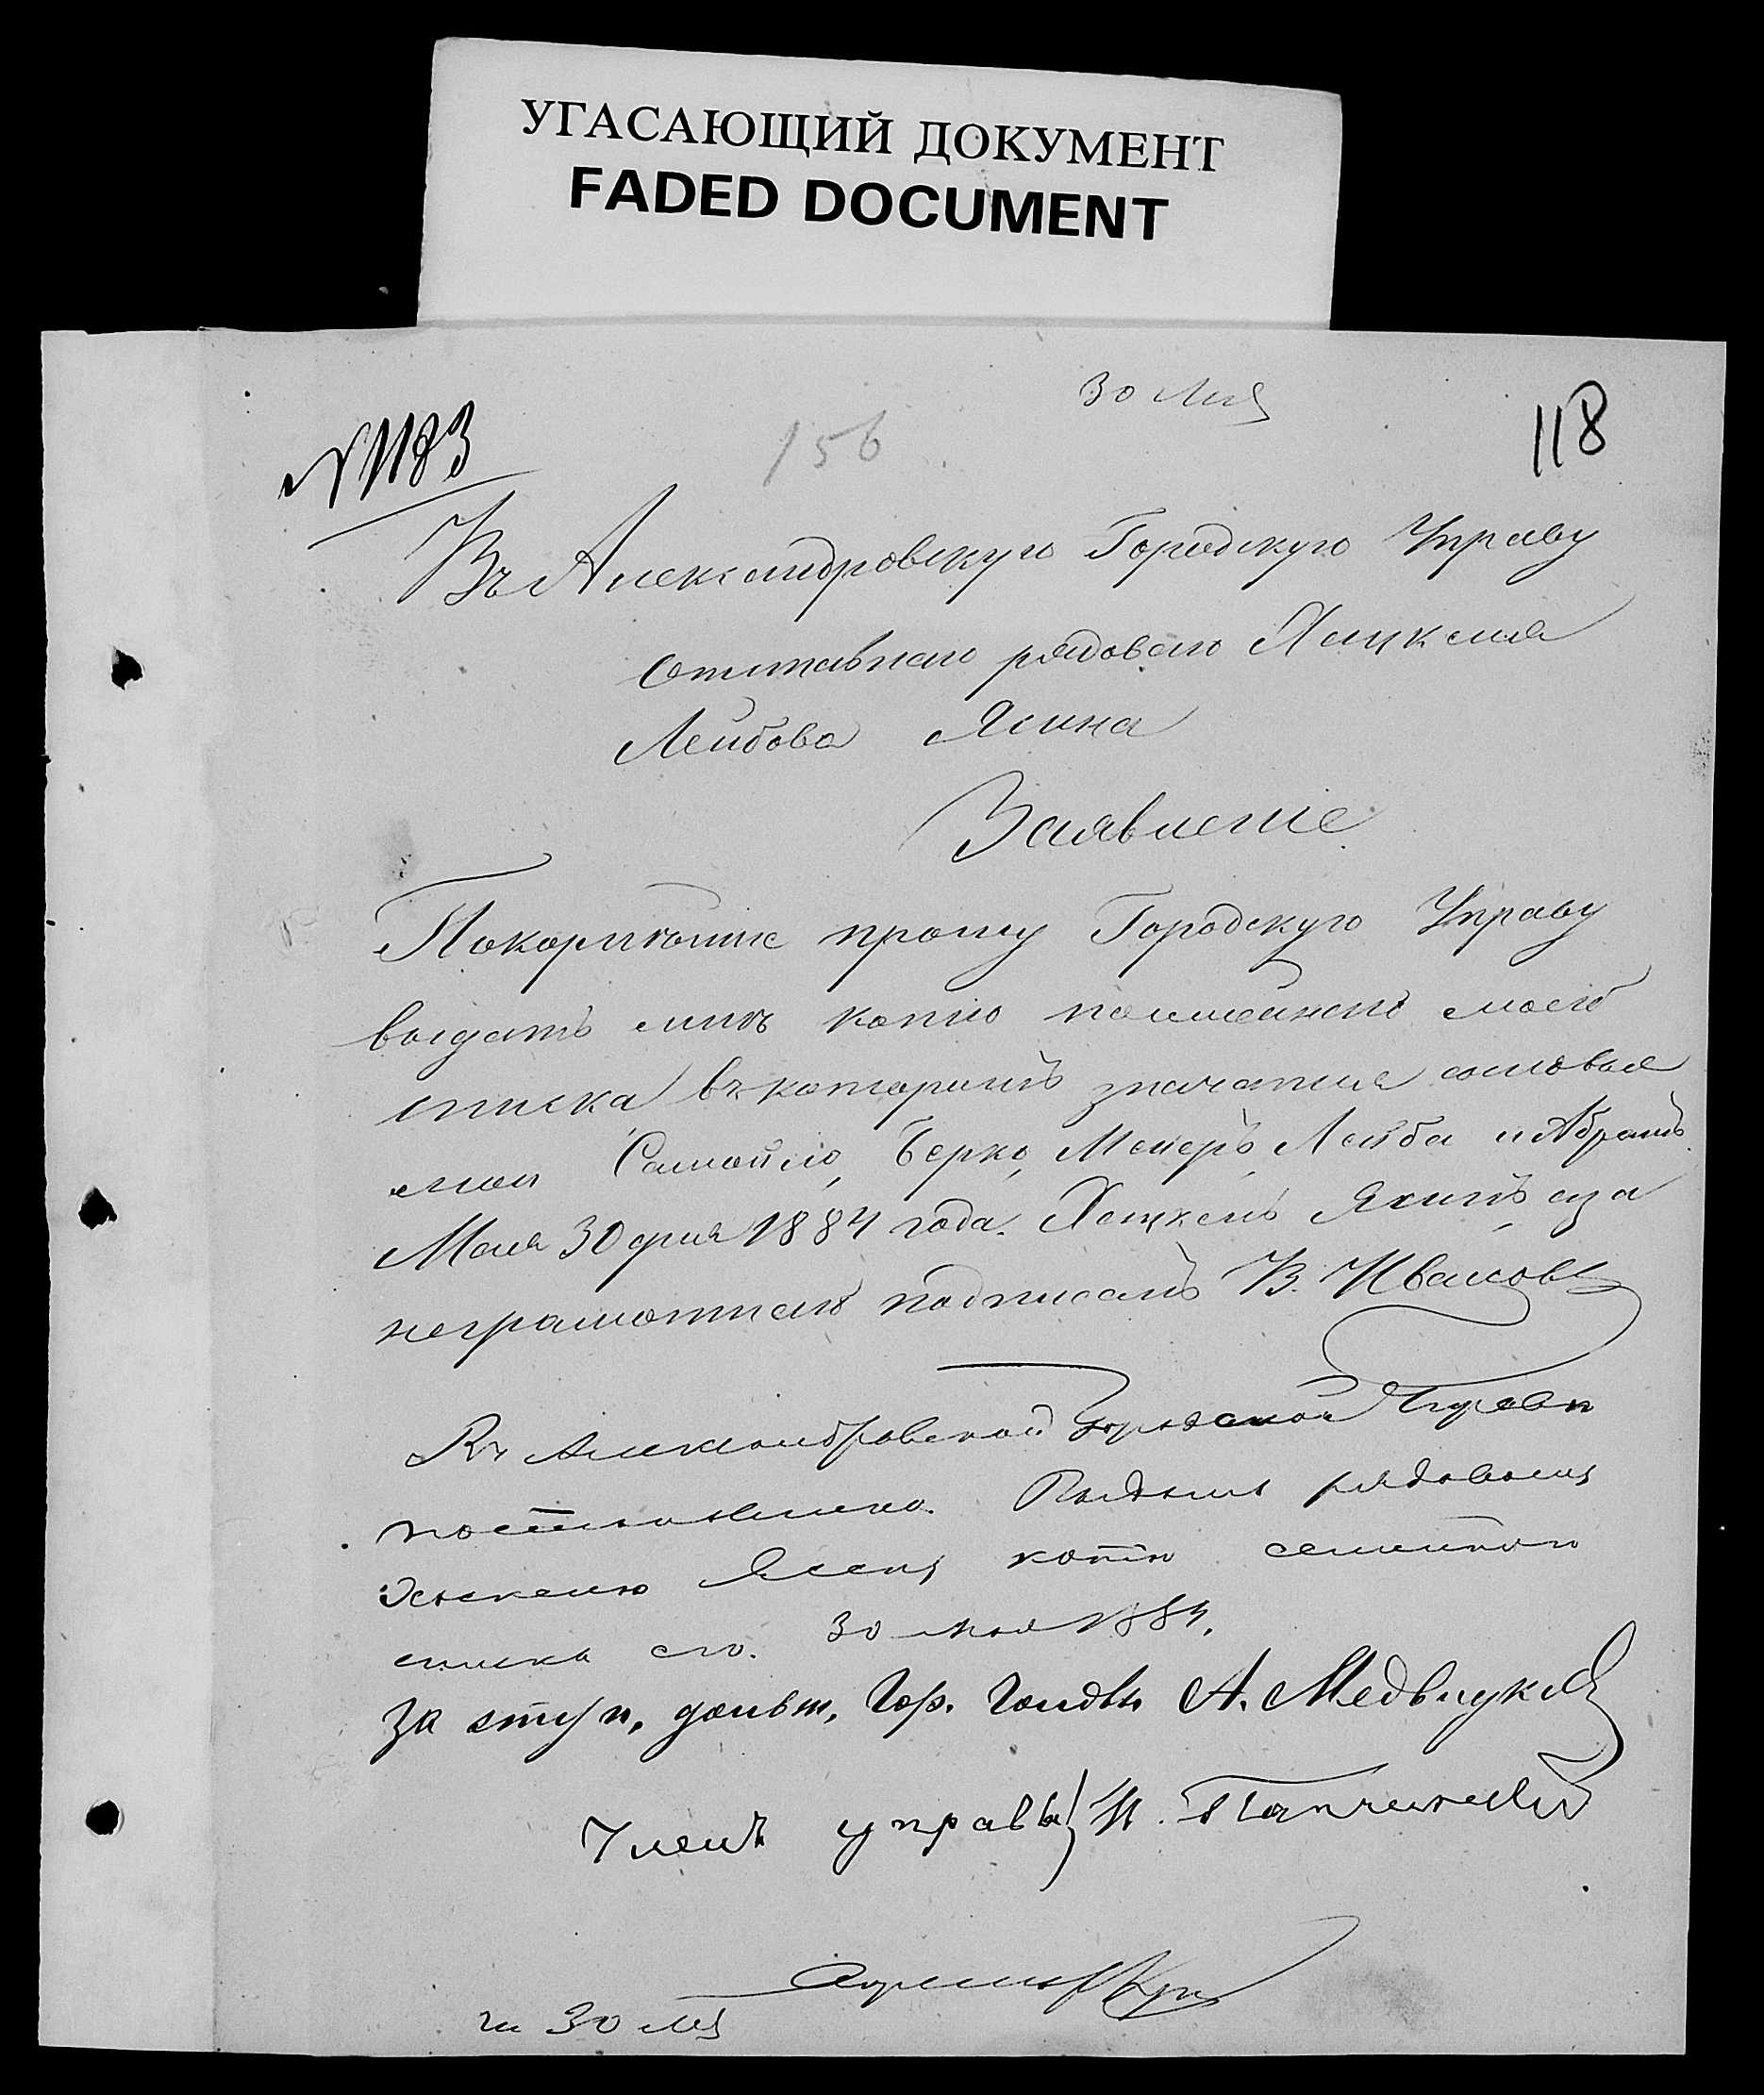 УГАСАЮЩИЙ ДОКУМЕНТ
FADED DOCUMENT
30 Мая
118
156
№ 1183
Въ Александровскую Городскую Управу
Отставнаго рядоваго Хацкеля
Лейбова Ясина
Заявленіе
Покорнѣйше прошу Городскую Управу
выдать мнѣ копію посемейнаго моего
списка въ которимъ значатся сыновья
мои Самойло, Берко, Мееръ, Лейба и Абрамъ
Мая 30 дня 1884 года. Хацкель Ясинъ а за
неграмотнаго подписалъ В. Ивановъ
Въ Александровской Городской Управѣ
постановлено. Выдать рядовому
Хацкелю Ясину копію семейнаго
списка его. 30 мая 1884.
За заступ. должн. Гор. Головы А. Медвѣд
Членъ управы И.
30 Мая